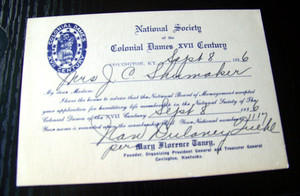 National Society
of the
Colonial Dames XVII Century
COVINGTON, KY. Sept 8 1916
Mrs J. C. Shumaker
My dear Madam:
I have the honor to advise that the National Board of Management accepted
your application for hereditary life membership in the National Society of The
Colonial Dames of the XVII Century on Sept 8 1916
Your name is entered under National number 1117
Nan Dulaney
per
Mary Florence Taney,
Founder, Organizing President General and Treasurer General
Covington, Kentucky.